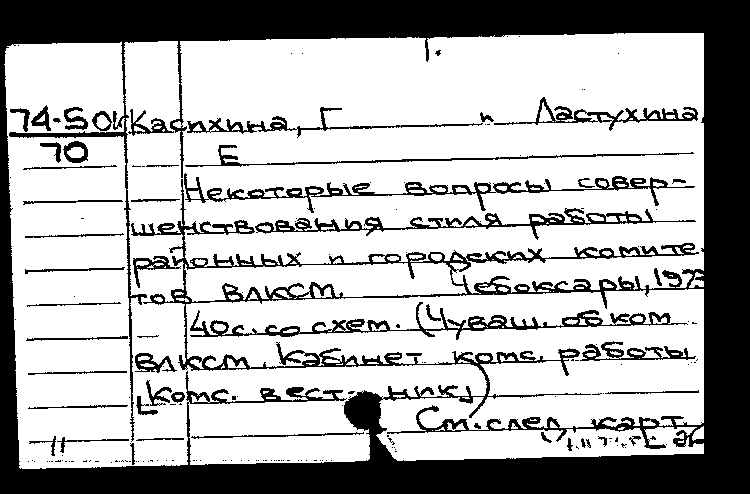 1.
74-5 Касихина, Г и Ластухина,
70 Е
Некоторые вопросы совер-
шенствования стиля работы
районных и городских комите-
тов ВЛКСМ. Чебоксары, 1973
40с. со схем. (Чуваш. обком
ВЛКСМ. Кабинет комс. работы
[Комс. вестник]).
См. след. карт.
11